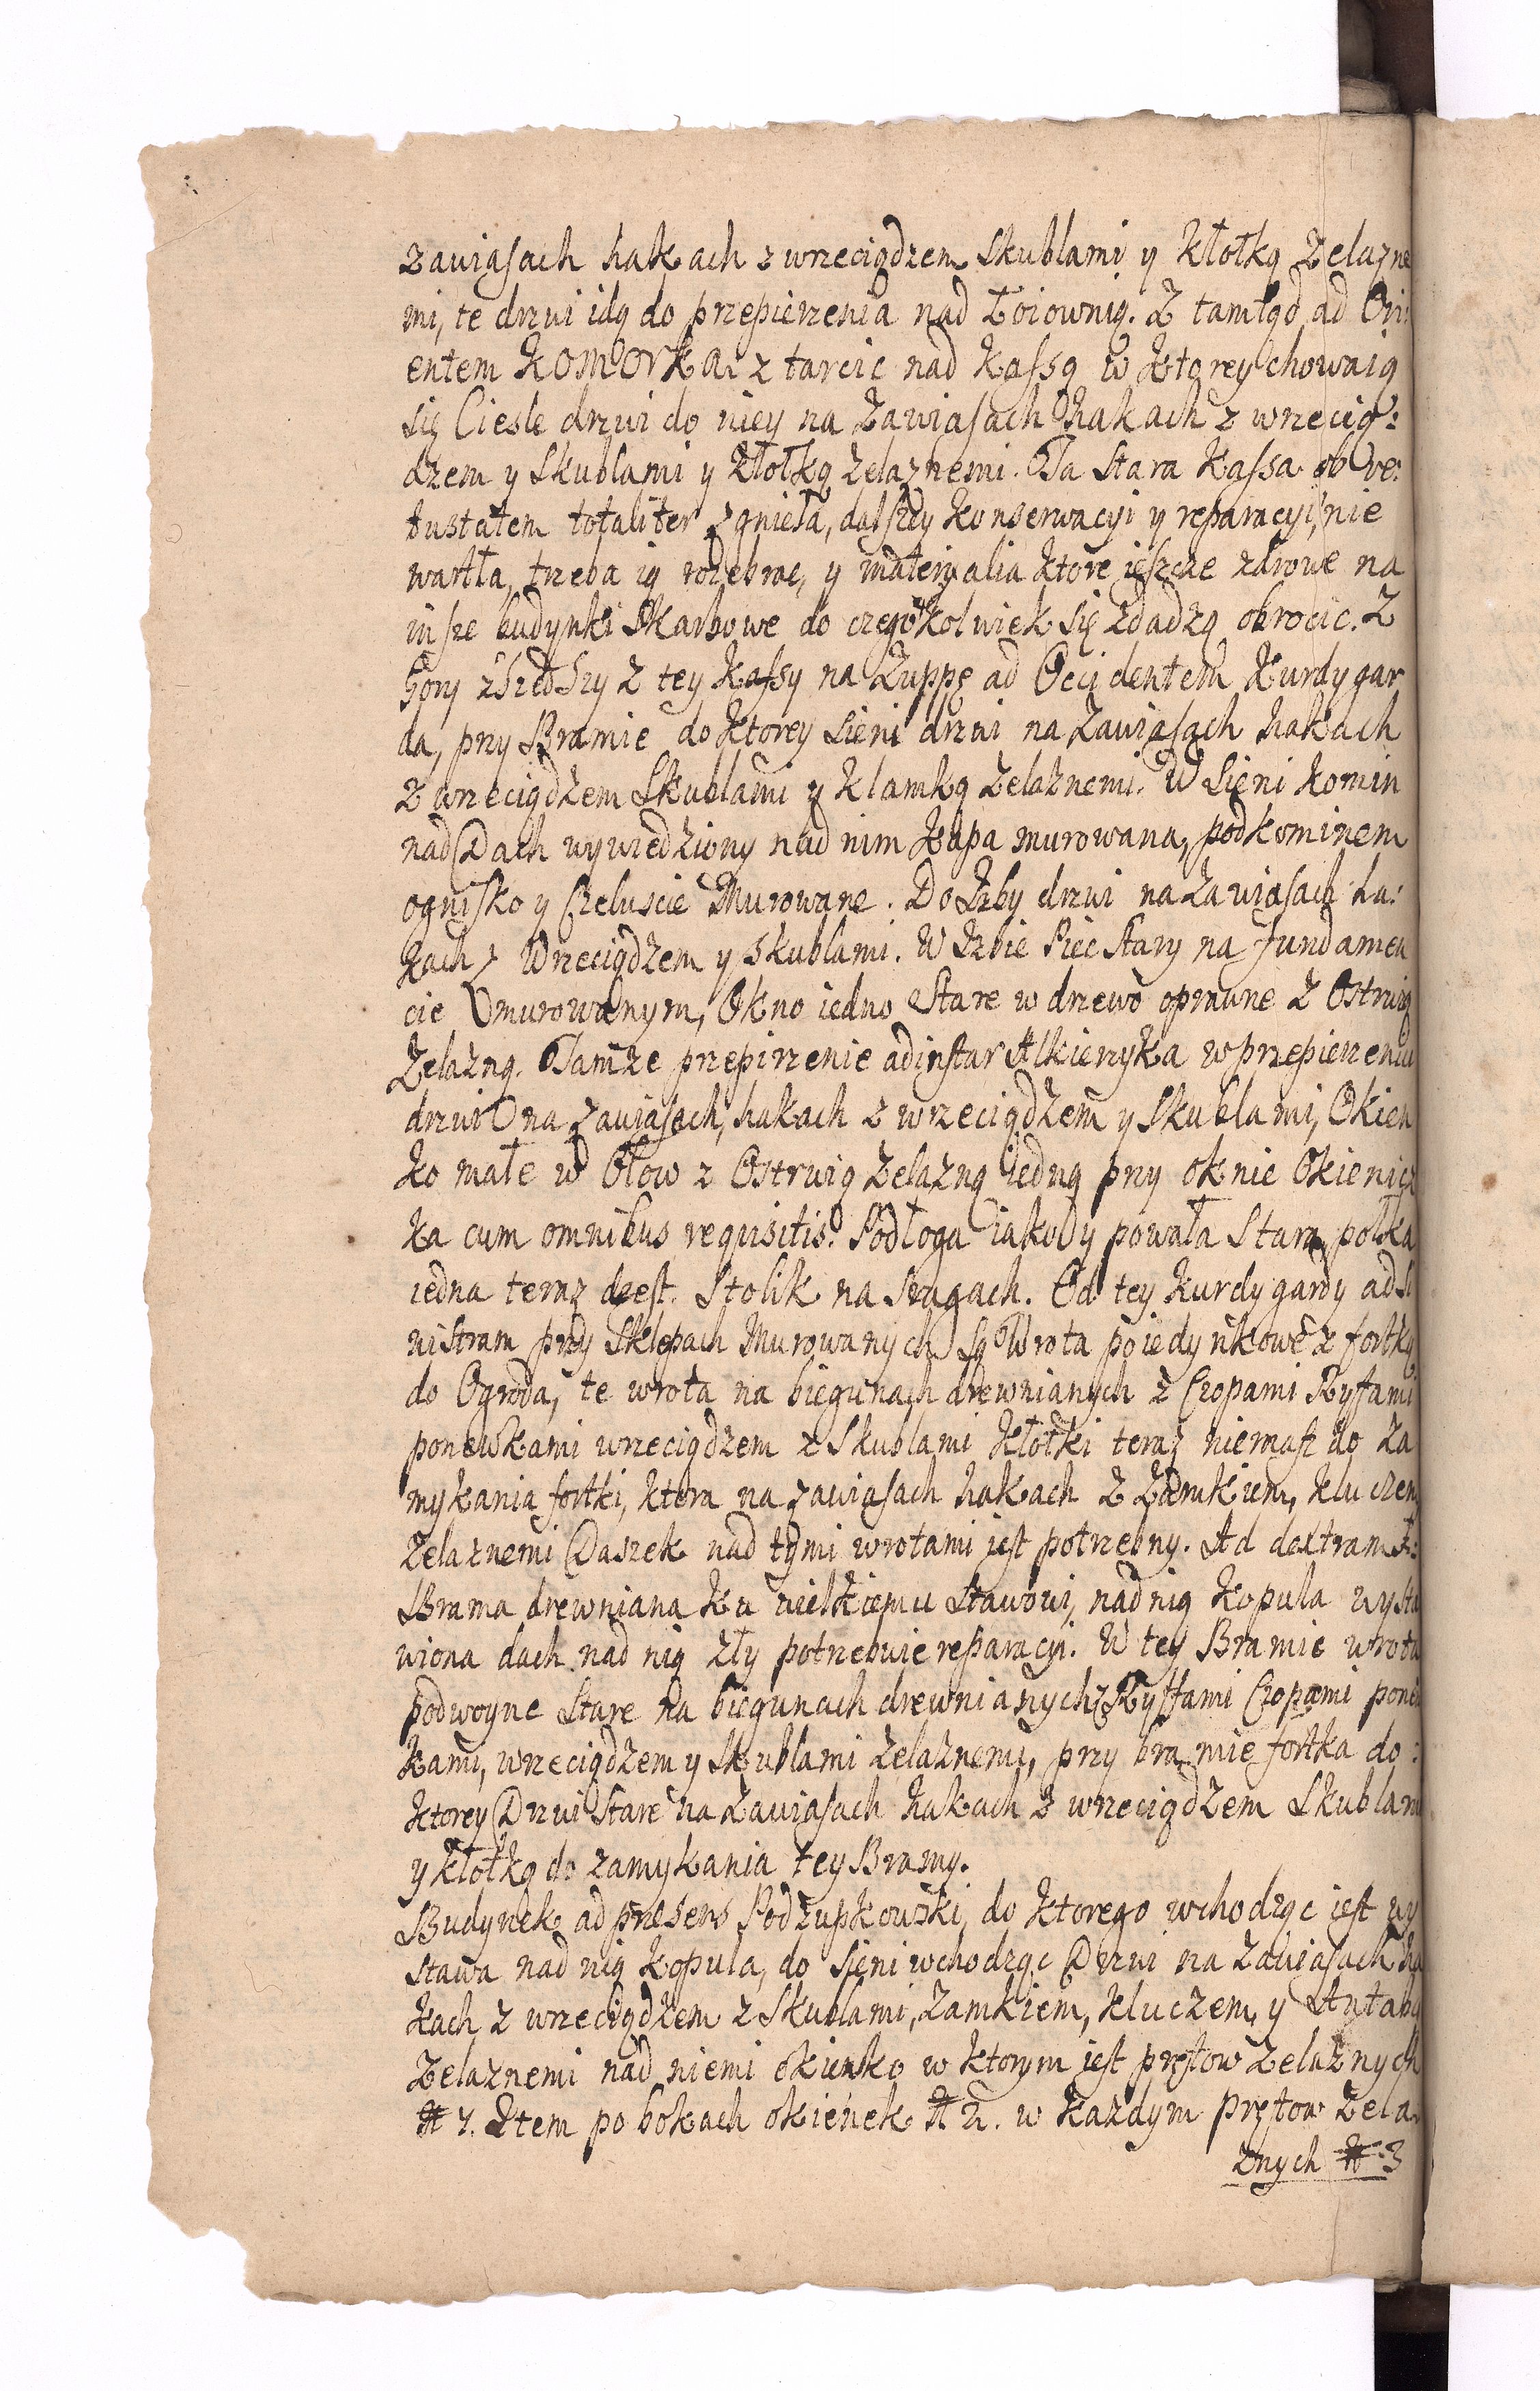 zawiasach hakach z wrzeciądzem skublami y kłotką żelazne
mi, te drzwi idą do przepierzenia nad Łoiownią. Z tamtąd ad Ori:
entem Komorka z tarcic nad Kassą w ktorey chowaią
się Cieśle drzwi do niey na Zawiasach hakach z wrzecią:
dzem y Skublami y kłotką żelaznemi. Ta stara Kassa ob ve:
tustatem totaliter zgnieła, dalszey konserwacyi y reparacyi, nie
wartła, trzeba ią rozebrac, y materyalia ktore ieszcze zdrowe na
insze budynki Skarbowe do czegokolwiek się zdadzą obrocic. Z
gory zszedszy z tey Kassy na Zuppę ad Occidentem Kurdygar
da, przy Bramie do ktorey Sieni drzwi na Zawiasach hakach
z wrzeciądzem Skublami y klamką żelaznemi. W Sieni komin
nad Dach wywiedziony nad nim kapa murowana, pod kominem
ognisko y Czeluscie Murowane. Do Izby drzwi na Zawiasach ha:
kach z Wrzeciądzem y Skublami. W Izbie Piec Stary na fundamen
cie murowanym, Okno iedno Stare w drzewo oprawne z Ostrwią
Zelazną. Tamże przepirzenie ad instar Alkierzyka w przepierzeniu
drzwi na zawiasach, hakach z wrzeciądzem y Skublami, Okien
ko małe w Ołow z Ostrwią żelazną iedną przy oknie Okienicz
ka cum omnibus requisitis. Podłoga iako y powała Stara, polka
iedna teraz deest. Stolik na szragach. Od tey kurdygardy ad Si
nistram przy Sklepach Murowanych są Wrota poiedynkowe z fortką
do Ogroda, te wrota na biegunach drewnianych z Czopami Ryfami
ponewkami wrzeciądzem z Skublami kłotki teraz niemasz do za
mykania fortki, ktora na zawiasach hakach z Zamkiem, kluczem
Zelaznemi Daszek nad tymi wrotami jest potrzebny. Ad dextram
Brama drewniana ku wielkiemu Stawowi, nad nią kopula wysta
wiona dach nad nią zły potrzebuie reparacyi. W tey Bramie wrota
podwoyne Stare na biegunach drewnianych z Ryffami Czopami ponew
kami, wrzeciądzem y Skublami żelaznemi, przy bramie fortka do:
ktorey Drzwi Stare na Zawiasach hakach z wrzeciądzem Skublami
y kłotką do zamykania tey Bramy.
Budynek ad præsens Podżupkowski, do ktorego wchodząc jest wy
stawa nad nią kopula, do Sieni wchodząc Drzwi na Zawiasach ha
kach z wrzeciądzem z Skublami, Zamkiem, kluczem, y Antabą
Zelaznemi nad niemi okienko w ktorym jest prętow żelaznych
# 7. Item po bokach okienek # 2. w każdym prętow żela
znych # 3